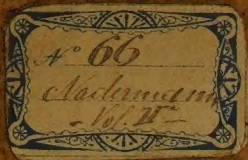 Nº 66
Nadermann
- Vol. II -